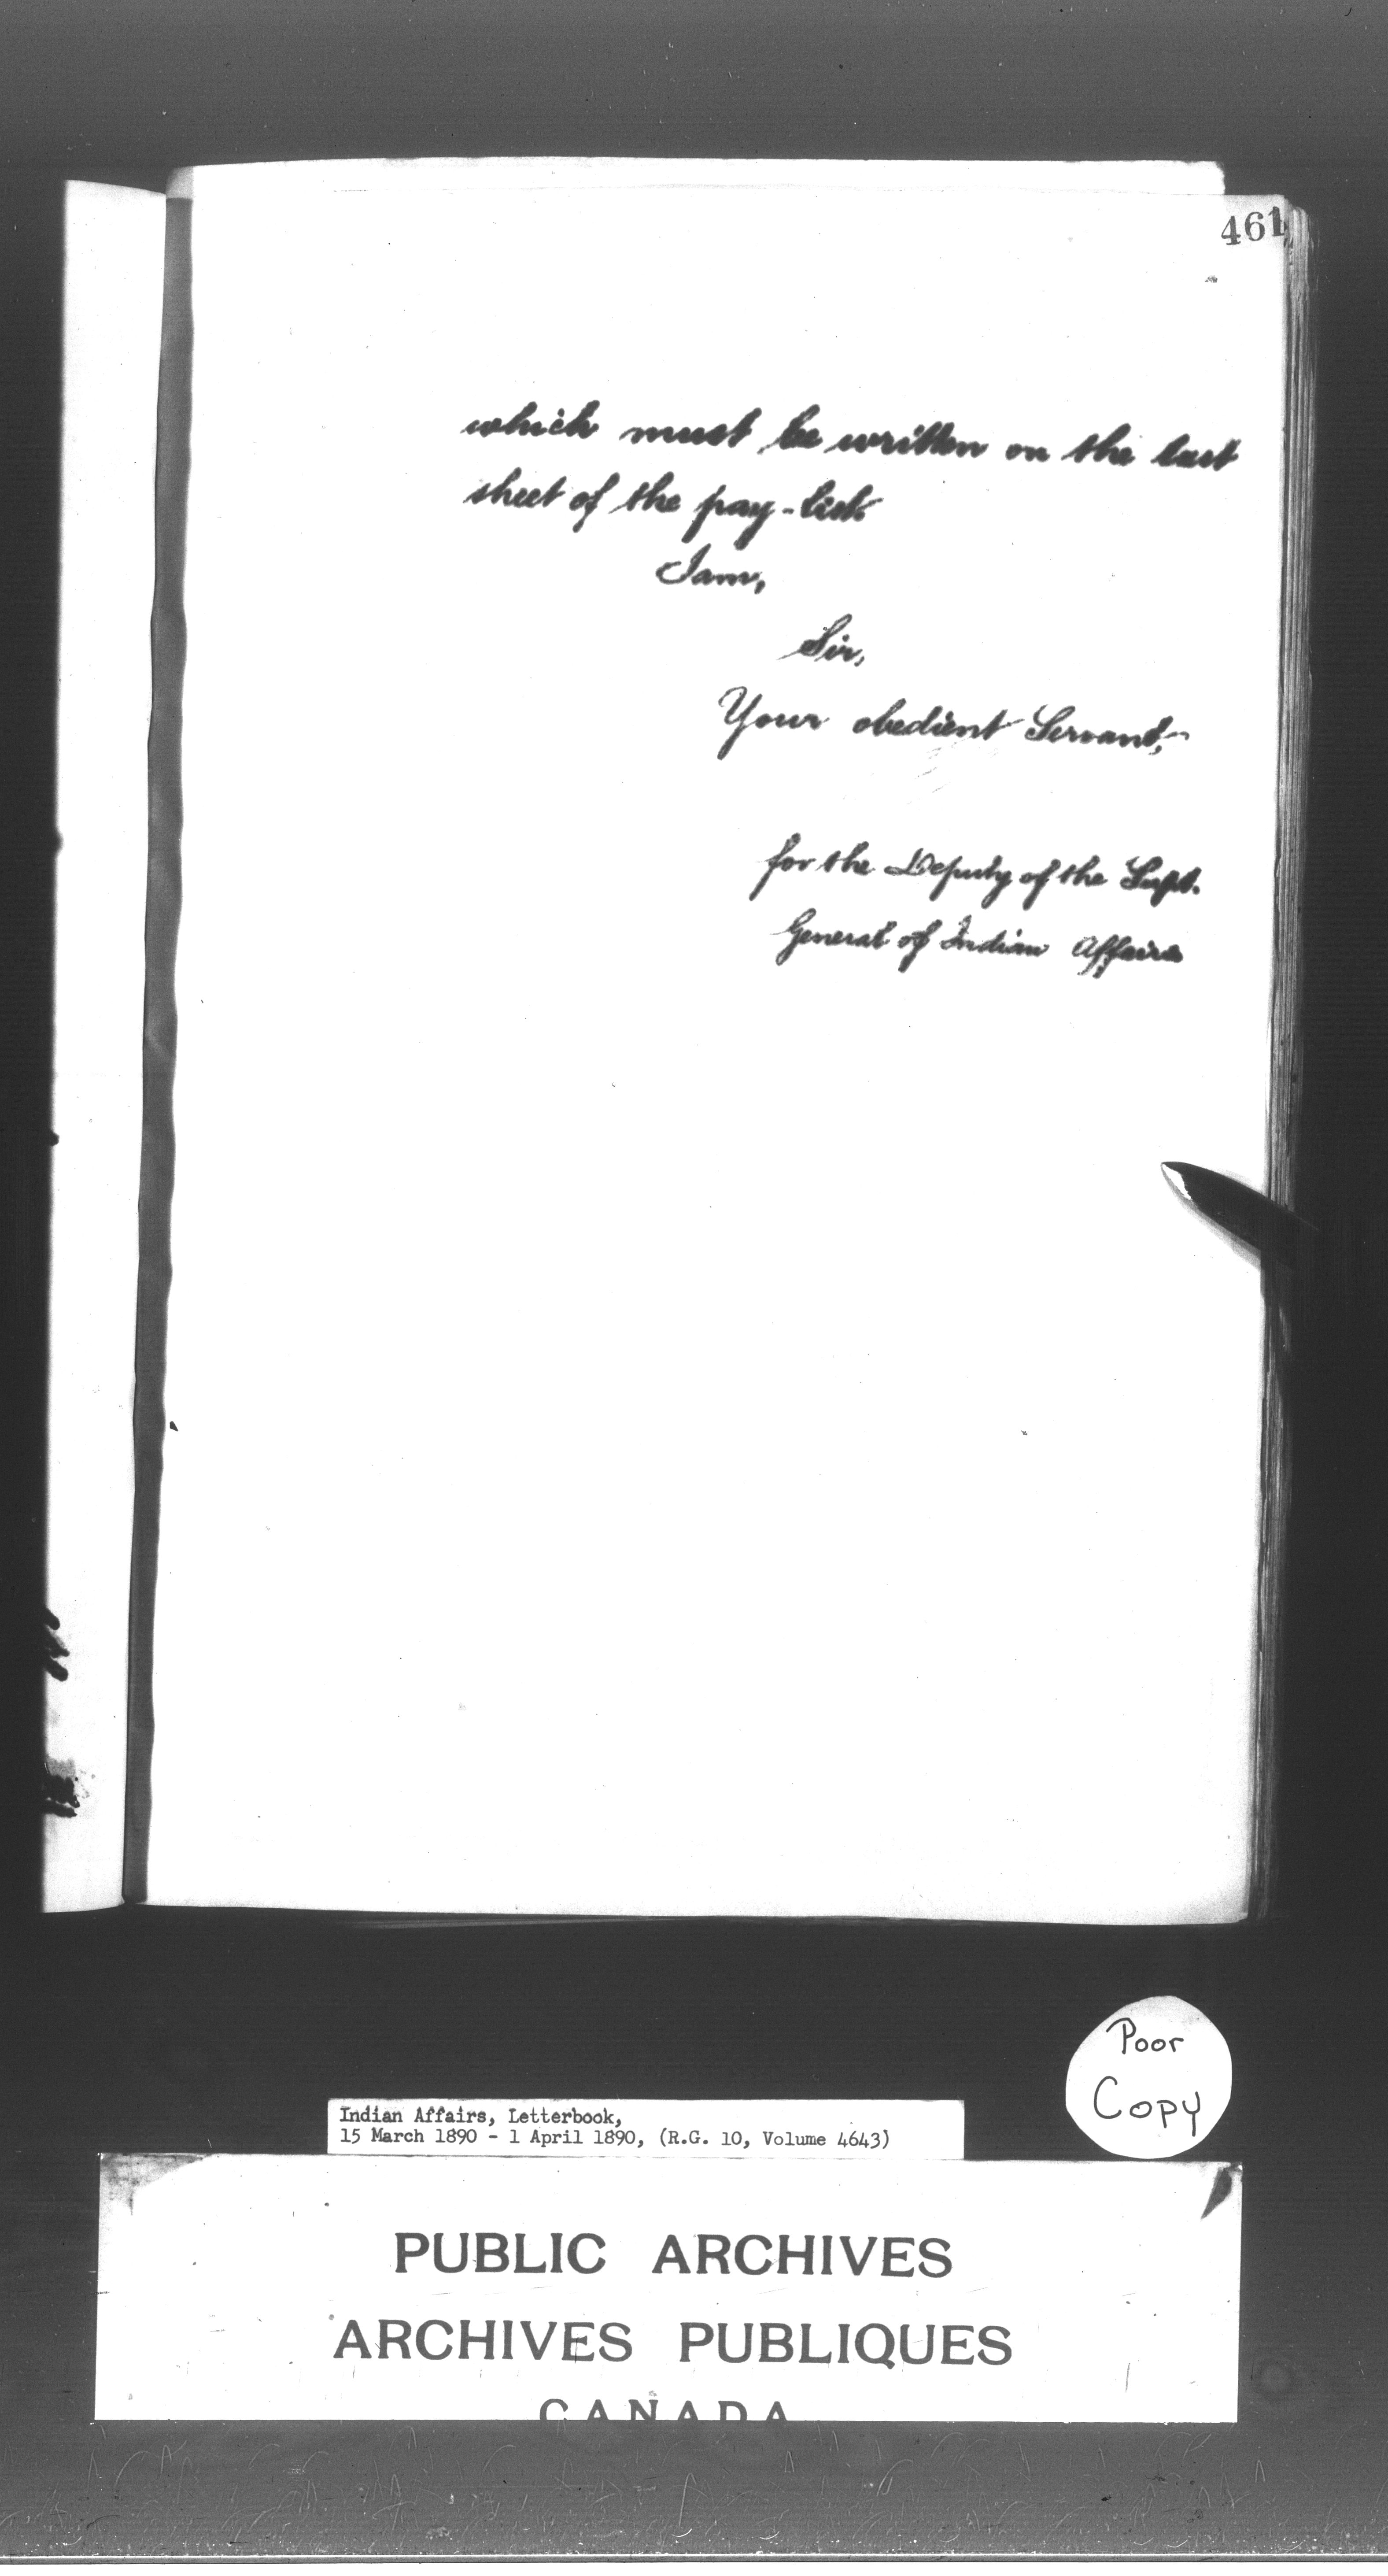 461
which must be written on the last
sheet of the pay-list.
I am,
Sir,
Your obedient Servant,
for the Deputy of the Supt.
General of Indian Affairs
Poor
Copy
Indian Affairs, Letterbook,
15 March 1890 - 1 April 1890, (R.G. 10, Volume 4643)
PUBLIC ARCHIVES
ARCHIVES PUBLIQUES
CANADA